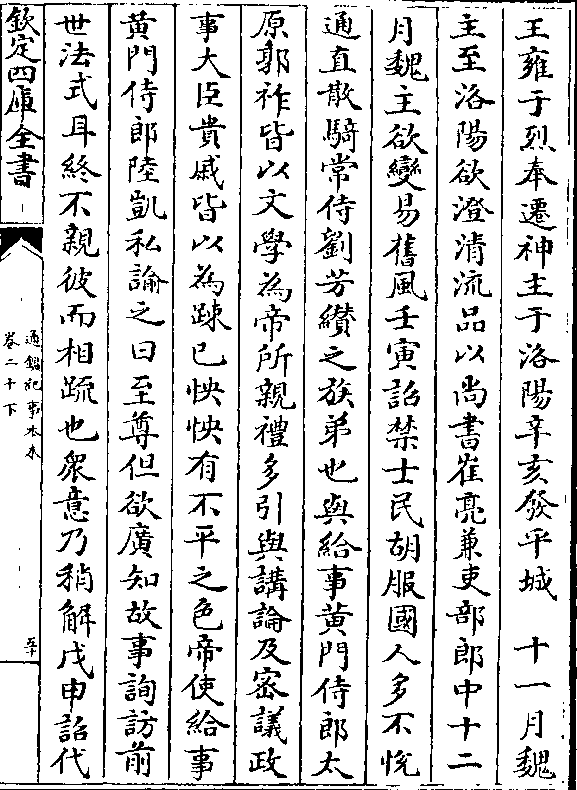 王雍于烈奉遷神主于洛陽辛亥發平城　十一月魏
主至洛陽欲澄清流品以尚書崔亮兼吏部郎中十二
月魏主欲變易舊風壬寅詔禁士民胡服國人多不恱
通直散騎常侍劉芳纉之族弟也與給事黄門侍郎太
原郭祚皆以文學為帝所親禮多引與講論及密議政
事大臣貴戚皆以為踈已怏怏有不平之色帝使給事
黄門侍郎陸凱私論之曰至尊但欲廣知故事詢訪前
世法式耳終不親彼而相䟽也衆意乃稍解戊申詔代
欽定四庫全書
通鑑紀事本末
卷二十下
五十